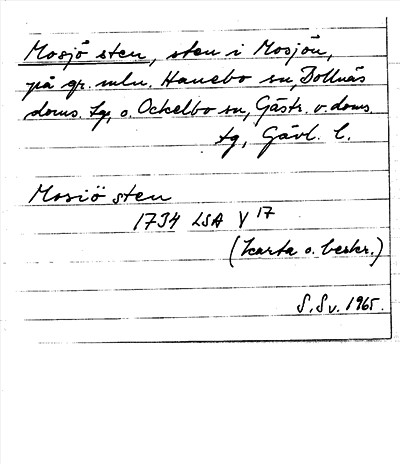 Mosjö sten, sten i Mosjön,
på gr. mln. Hanebo sn, Bollnäs
doms. tg, o. Ockelbo sn, Gästr. v. doms.
tg, Gävl. l.
Mosiö sten
1734 LSA V 17
(karta o. beskr.)
S. Sv. 1965.